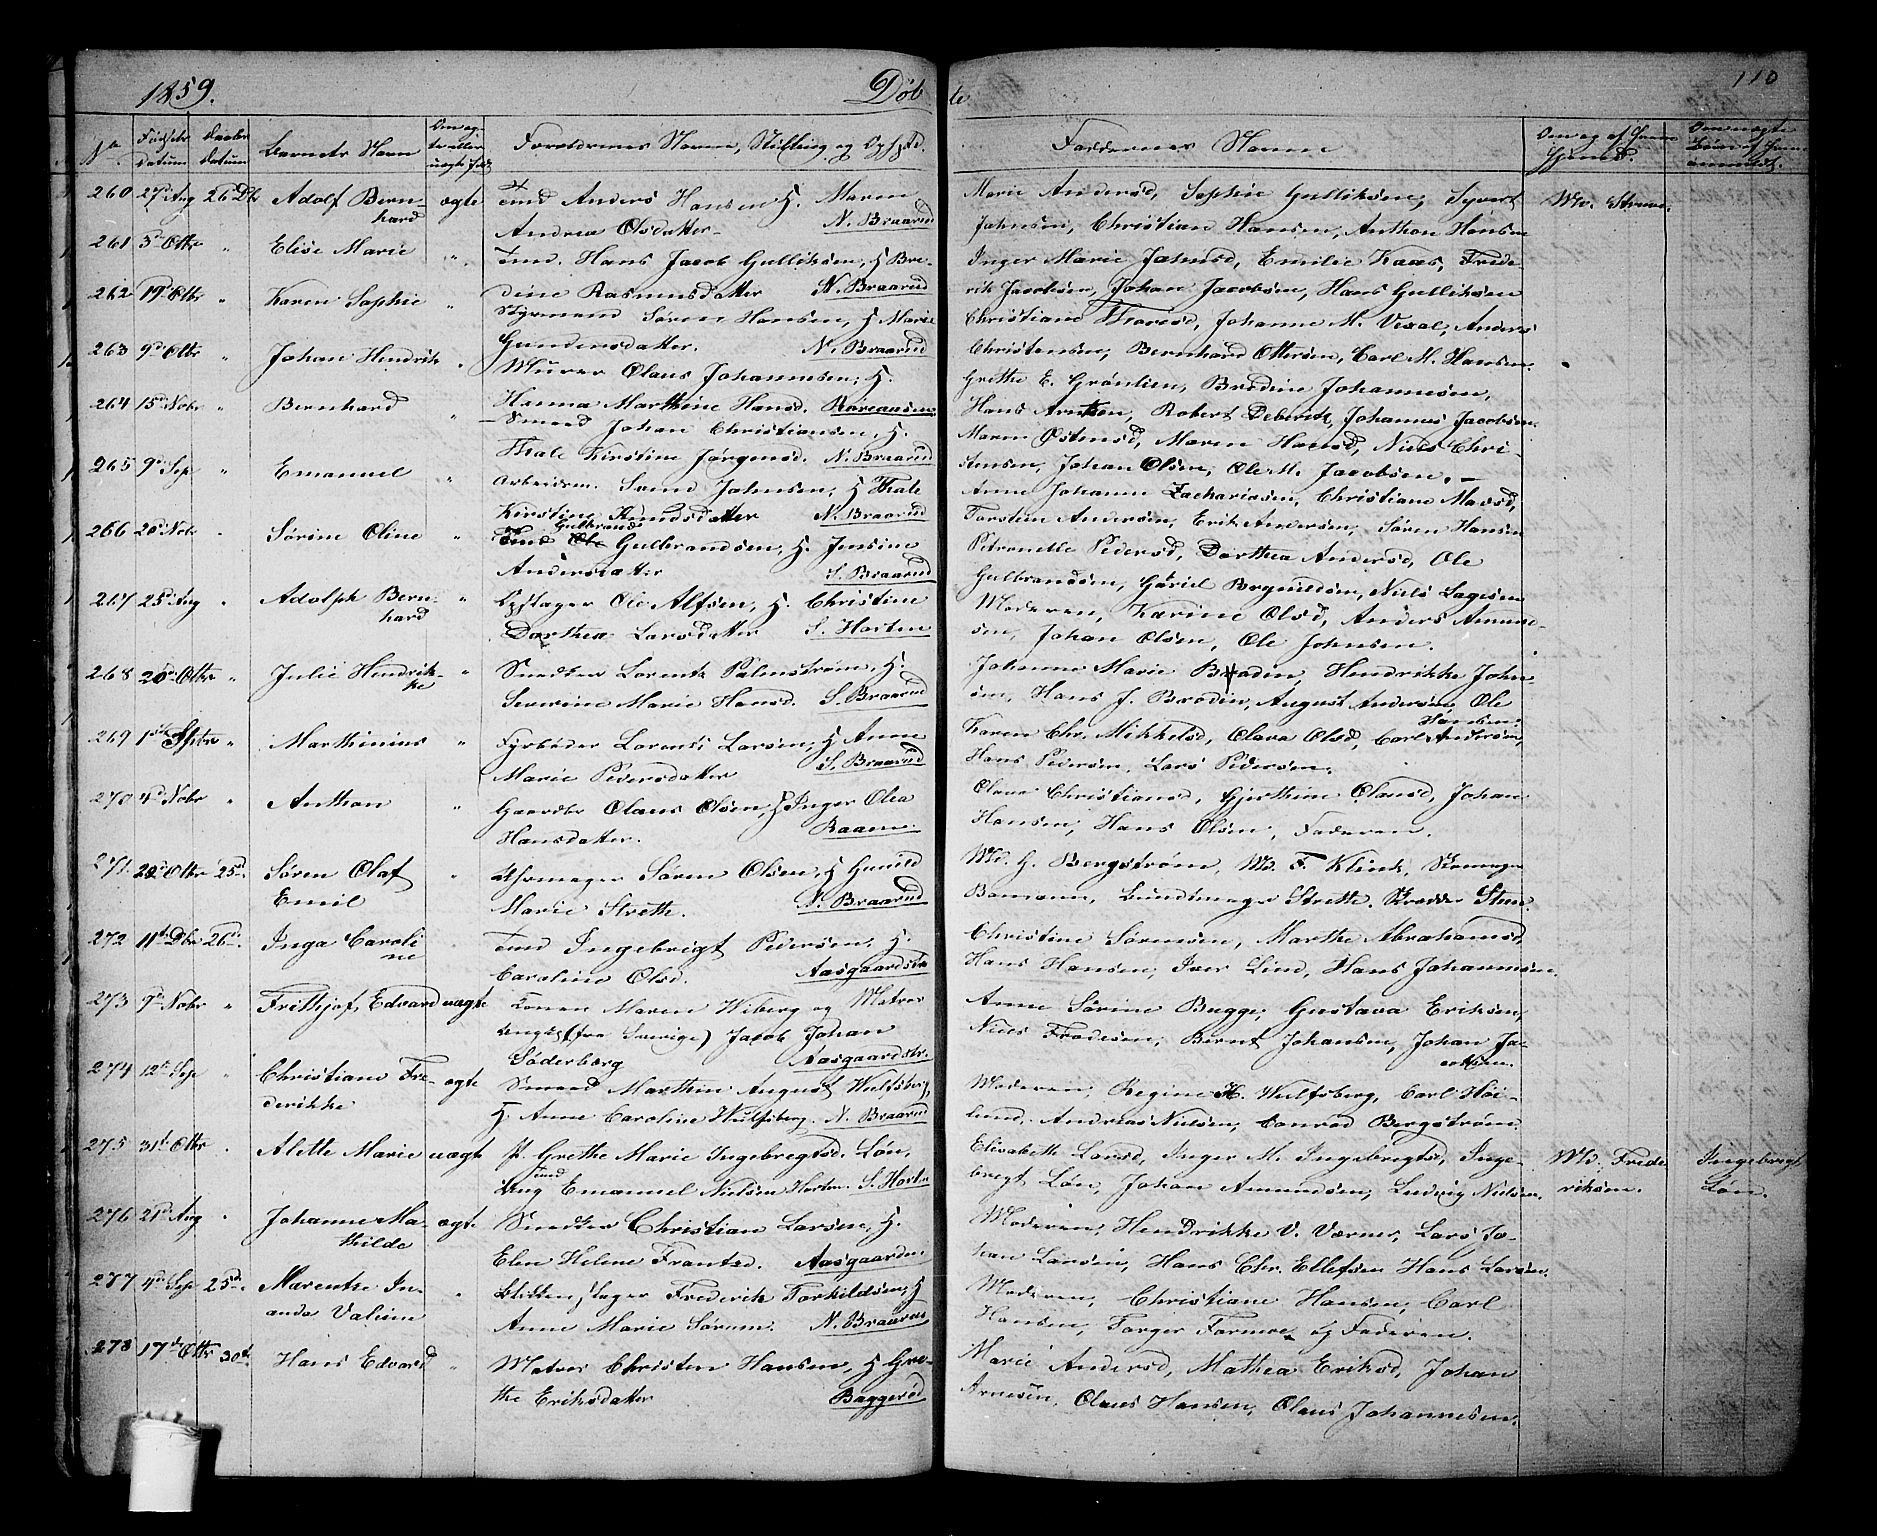 1859.
Døb
te
110
No
Fødsels datum
Daabs datum
Barnets Navn
Om ægte eller uægte født
Forældrenes Navne, Stilling og Opholdst.
Faddernes Navne
260 27de Aug 26 Dbr Adolf Bern- ægte Tmd Anders Hansen H. Maren
hard Andrea Olsdatter N. Braarud
Marie Andersd, Sophie Gulliksen, Syvert
Johnsen, Christian Hansen, Anthon Hansen
Md. Strøm
261 5te Otbr " Elise Marie " Tmd. Hans Jacob Gulliksen, H Bre-
dine Rasmusdatter N. Braarud
Inger Marie Johnsd, Emilie Kaas, Frede-
rik Jacobsen, Johan Jacobsen, Hans Gulliksen
262 19de Otbr " Karen Sophie " Styrmand Søren Hansen, H Marie
Gundersdatter. N. Braarud
Christiane Thoresd, Johanne M. Vexal, Anders
Christensen, Bernhard Ottersen, Carl M. Hansen
263 9de Otbr " Johan Hendrik " Murer Olaus Johannesen, H.
Hanna Marthine Hansd.
Grethe E. Grønlien, Bredine Johannesen,
Hans Arntsen, Robert Deberitz, Johannes Jacobsen.
264 15de Nobr " Bernhard " Smed Johan Christiansen, H.
Thale Kirstine Jørgensd. N. Braarud
Maren Østensd, Maren Hansd, Niels Chri-
stensen, Johan Olsen, Ole M. Jacobsen.
265 9de Sep " Emanuel " Arbeidsm. Svend Johnsen, H Thale
Kirstine Knudsdatter N. Braarud
Anne Johanne Zachariasen, Christiane Madsd,
Torsten Andersen, Erik Andersen, Søren Hansen
266 20de Nobr " Sørine Oline " Tmd Gulbrand Gulbrandsen, H. Jensine
Andersdatter S. Braarud
Petronelle Pedersd, Dorthea Andersd, Ole
Gulbrandsen, Gabriel Brynildsen, Niels Lagesen
267 25de Aug " Adolph Bern- " Lystager Ole Alfsen, H. Christine
hard Dorthea Larsdatter S. Horten
Moderen, Karine Olsd, Anders Amund-
sen, Johan Olsen, Ole Johnsen.
268 20de Otbr " Julie Hendrik- " Snedker Lorentz Palmstrøm, H.
ke Severine Marie Hansd. S. Braarud
Johanne Marie Brodin, Hendrikke John-
sen, Hans J. Brodin, August Andersen, Ole
Hansen.
269 1ste Spbr " Marthinius " Fyrbøder Lorents Larsen, H Anne
Marie Pedersdatter S. Braarud
Karen Chr. Mikkelsd, Olava Olsd, Carl Andersen,
Hans Pedersen, Lars Pedersen.
270 4de Nobr " Anthon " Gaardbr Olaus Olsen, H Inger Olea
Hansdatter. Raanæ.
Olava Christiansd, Gjerthine Olausd, Johan
Hansen, Hans Olsen, Faderen.
271 22de Otbr 25de Søren Olaf " Uhrmager Søren Olsen, H Gunild
Emil Marie Strøtte. N. Braarud
Md. G. Bergstrøm, Md. F. Klinck, Skomager
Bamann, Bundtmager Strette. Skrædder Steen
272 11te Dbr 26de Inga Caroli- " Tmd Ingebrigt Pedersen, H.
ne Caroline Olsd. Aasgaardstr.
Christine Sørensen, Marthe Abrahamsd,
Hans Hansen, Iver Lind, Hans Johannesen.
273 9de Nobr " Frithjof Edvard uægte Konen Maren Wiberg og Matros
Ungk (fra Sverige) Jacob Johan
Søderberg Aasgaardstr.
Anne Sørine Bugge, Gustava Eriksen,
Niels Fredesen, Bernt Johansen, Johan Ja-
cobsen.
274 12te Sep " Christiane Fre- ægte Smed Marthin August Wulfsberg,
derikke H. Anne Caroline Wulfsberg. N. Braarud
Moderen, Regine H. Wulfsberg, Carl Høi-
lund, Andreas Nielsen, Conrad Bergstrøm
275 31te Otbr " Alette Marie uægte P. Grethe Marie Ingebregtsd. Løn,
Tmd
Ung Emanuel Nielsen Horten. S. Horten
Elisabeth Larsd, Inger M. Ingebregtsd, Inge-
bregt Løn, Johan Amundsen, Ludvig Nielsen.
Md. Frede-
riksen.
Ingebregt
Løn.
276 21de Aug " Johanne Ma- ægte Snedker Christian Larsen, H.
thilde Elen Helene Frantsd. Aasgaarden
Moderen, Hendrikke V. Værner, Lars Jo-
han Larsen, Hans Chr. Ellefsen Hans Larsen.
277 4de Sep 25de Marentze In- " Blikkenslager Frederik Torkildsen, H
anda Valine Anne Marie Sørum. N. Braarud
Moderen, Christiane Hansen, Carl
Hansen, Torger Tormoe og Faderen.
278 17de Otbr 30te Hans Edvard " Matros Christen Hansen, H Gre-
the Eriksdatter Baggerød
Marie Andersd, Mathea Eriksd, Johan
Arnesen, Olaus Hansen, Olaus Johannesen.